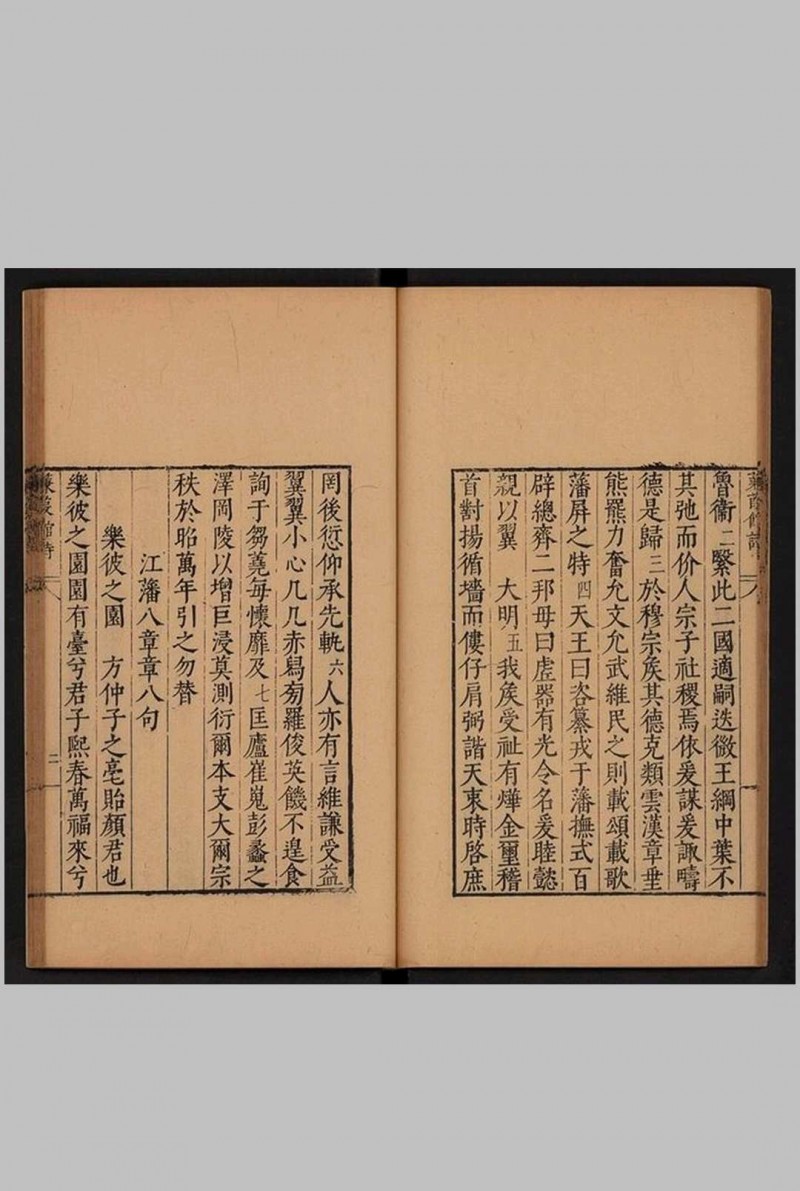 魯衞二繄此二國適嗣迭微王綱中葉不
其弛而价人宗子社稷焉依爰謀爰諏疇
德是歸三於穆宗矦其德克類雲漢章垂
熊羆力奮允文允武維民之則載頌載歌
藩屏之特四天王曰咨纂戎于藩撫式百
辟總齊二邦毋曰虛器有光令名爰睦懿
親以翼　大明五我矦受祉有燁金璽稽
首對揚循墻而僂仔肩弼諧天衷時啓庶
罔後愆仰承先軌六人亦有言維謙受益
翼翼小心几几赤舄旁羅俊英饑不遑食
詢于芻蕘每懷靡及七匡廬崔嵬彭蠡之
澤岡陵以增巨浸莫測衍爾本支大爾宗
秩於昭萬年引之勿替
江藩八章章八句
樂彼之園　方仲子之亳貽顏君也
樂彼之園園有臺兮君子熙春萬福來兮
館詩
二